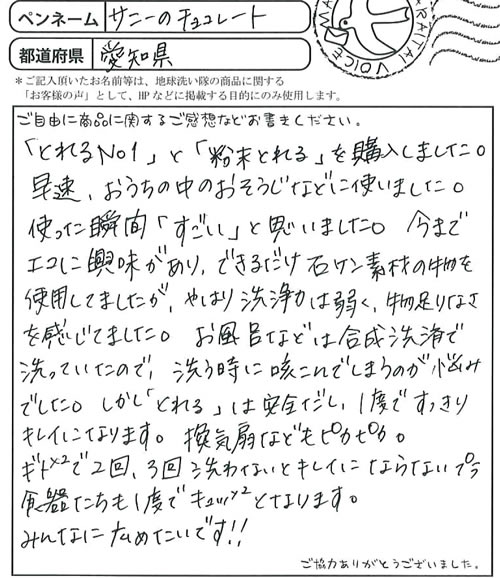 ペンネーム サニーのチョコレート
都道府県 愛知県
MA ARAITAI VOICE
*ご記入頂いたお名前等は、地球洗い隊の商品に関する
「お客様の声」として、HPなどに掲載する目的にのみ使用します。
ご自由に商品に関するご感想などお書きください。
「とれるNo1」と「粉末とれる」を購入しました。
早速、おうちの中のおそうじなどに使いました。
使った瞬間「すごい」と思いました。今まで
エコに興味があり、できるだけ石ケン素材の物を
使用してましたが、やはり洗浄力は弱く、物足りなさ
を感じてました。お風呂などは合成洗剤で
洗っていたので、洗う時に咳こんでしまうのが悩み
でした。しかし「とれる」は安全だし、1度ですっきり
キレイになります。換気扇などもピカピカ。
ギトx2で2回、3回洗わないとキレイにならないプラ
食器たちも1度でキュッx2となります。
みんなに広めたいです!!
ご協力ありがとうございました。